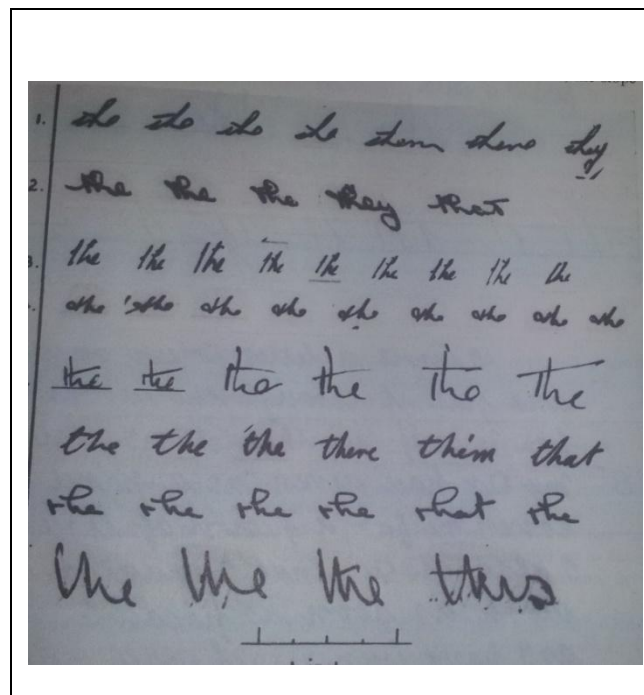 1. the the the the them there they
2. the the the they that
3. the the the the the the the the the
the the the the the the the the the
the the the the the The
the the the there them that
the the the the that the
the the the this